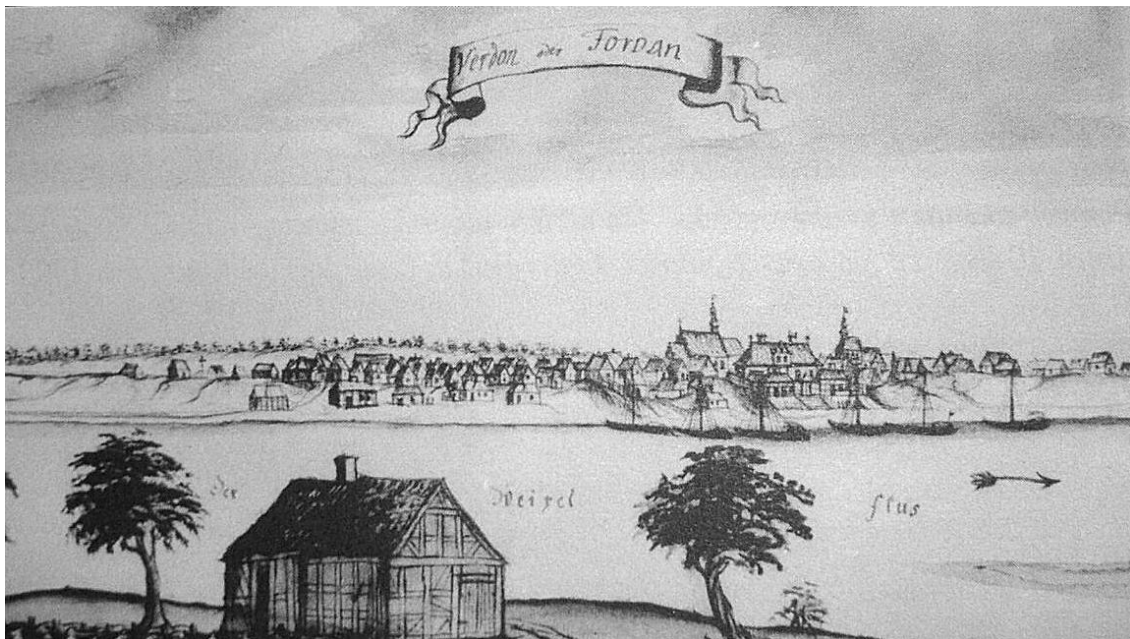 Verdon Fordan
der Weixel flus